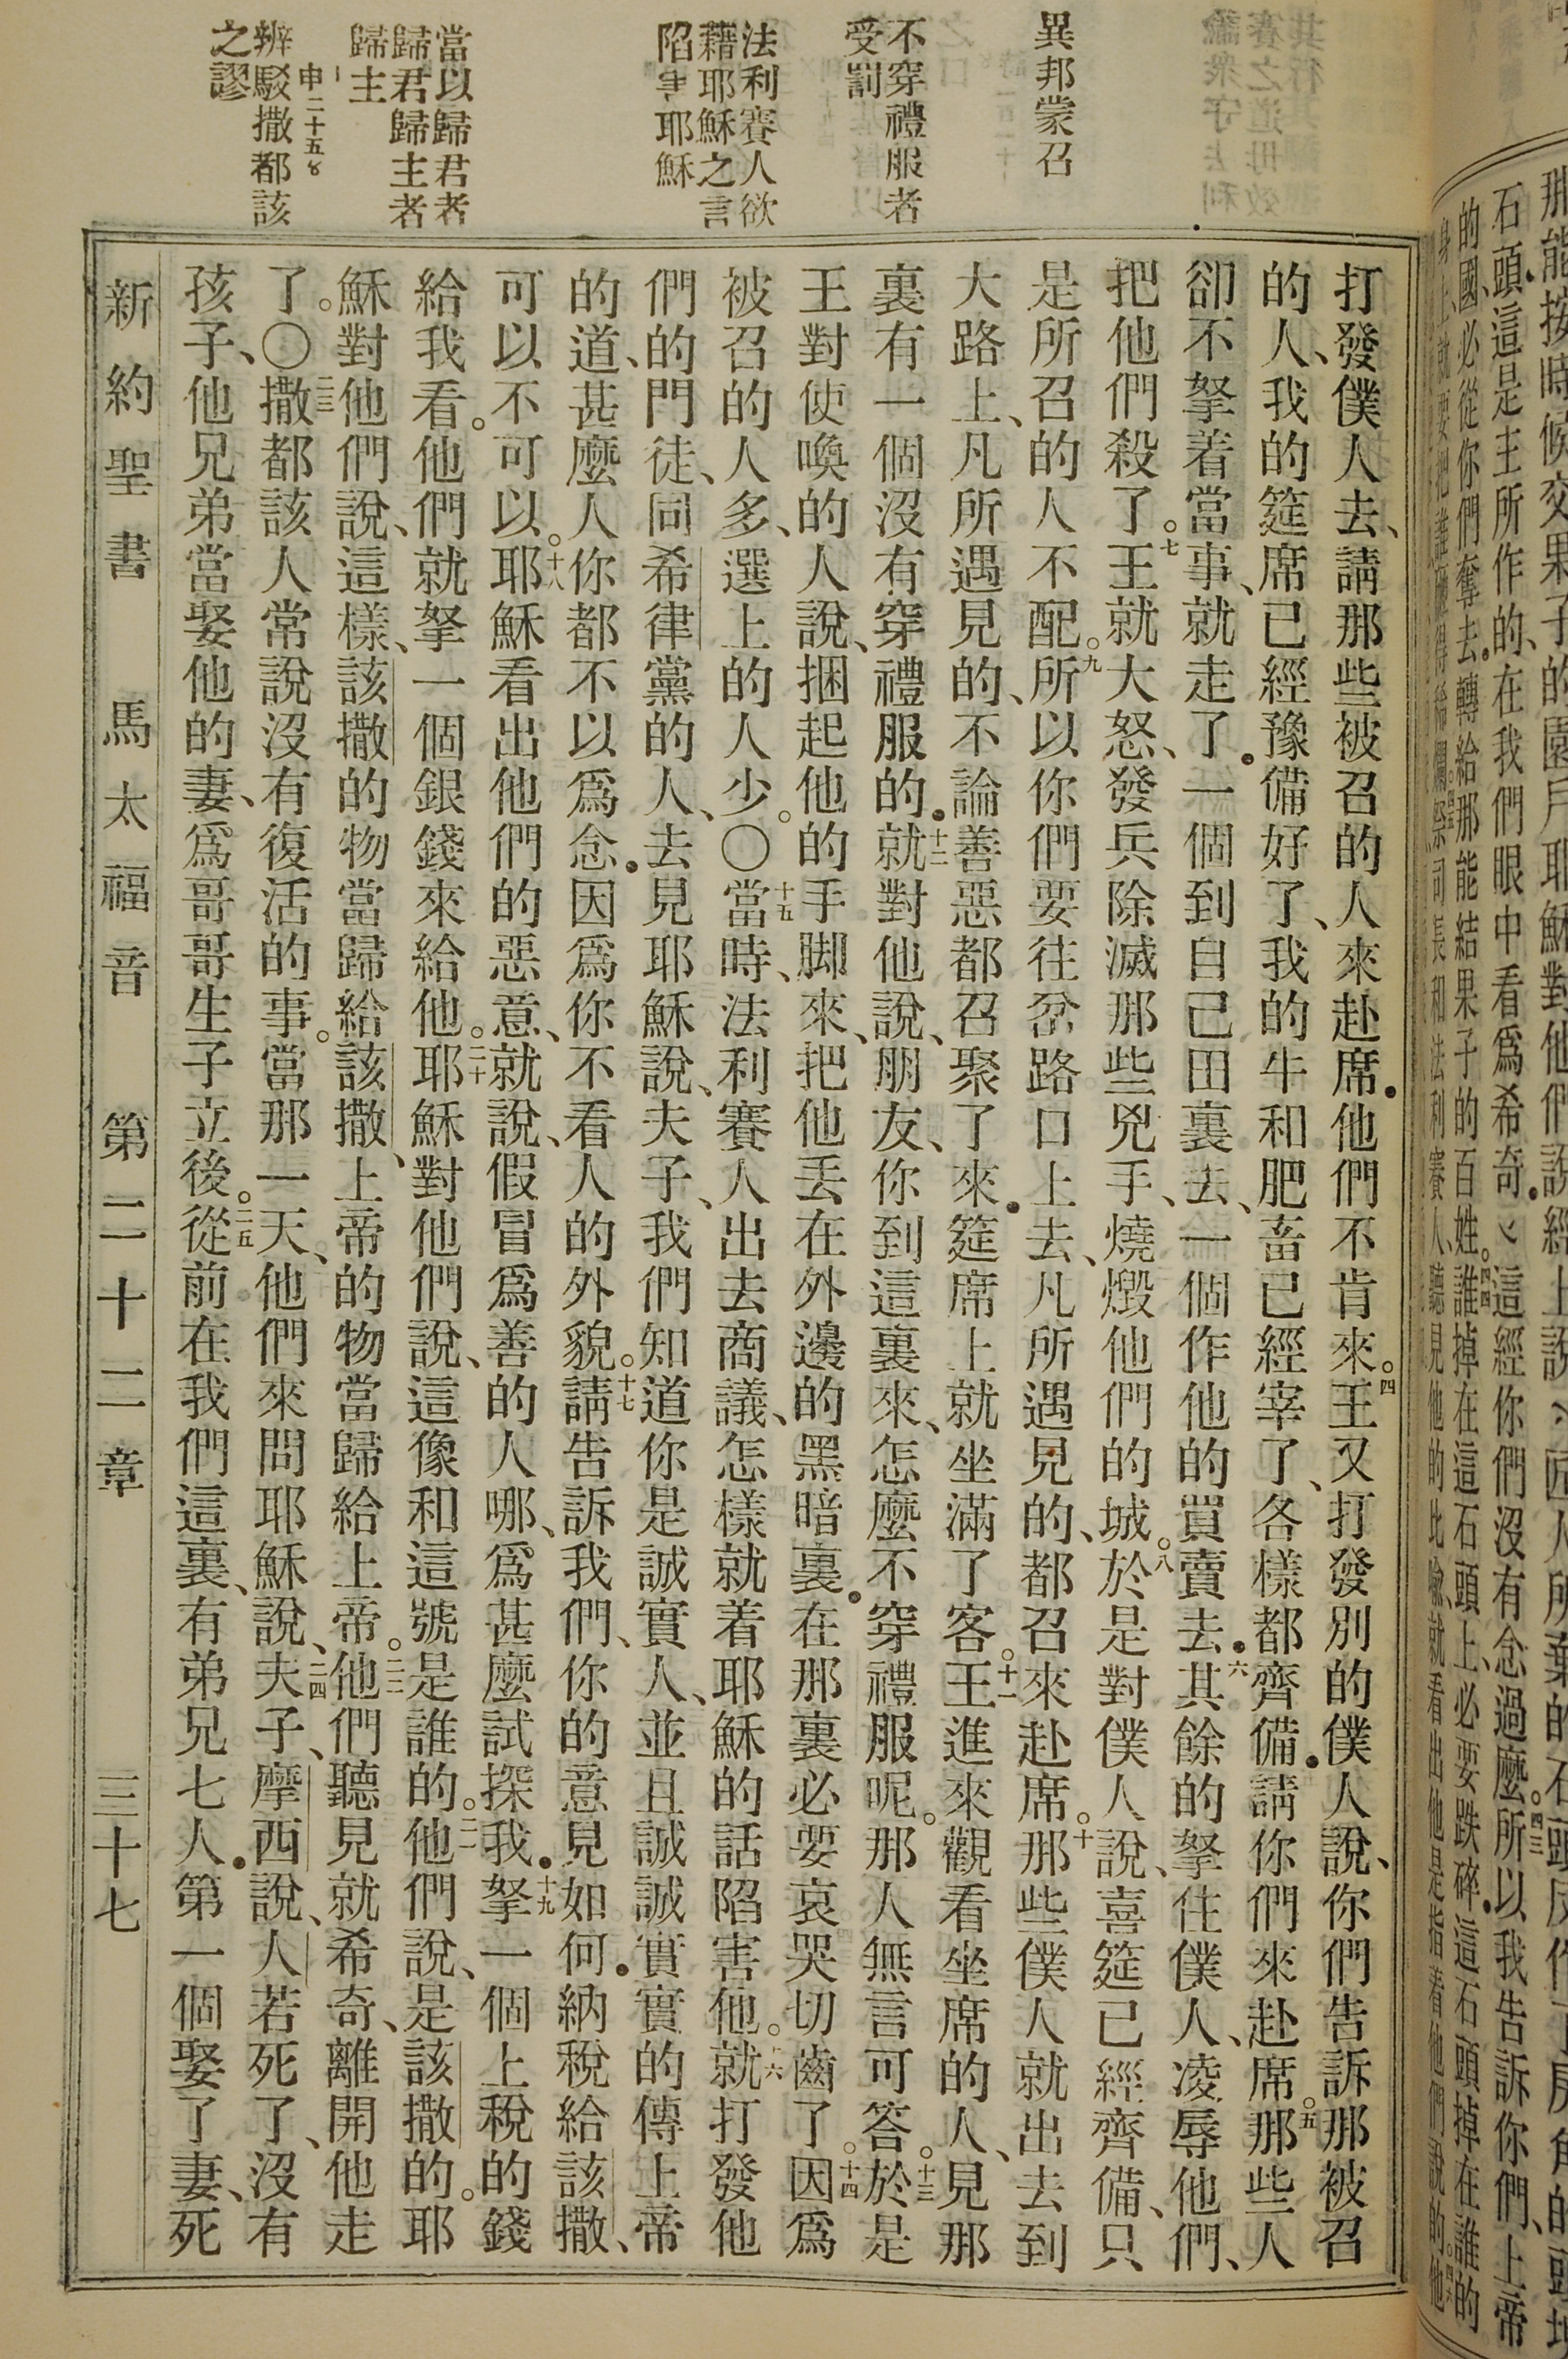 石頭．這是主所作的、在我們眼中看為希奇．這經你們沒有念過麼。四三所以我告訴你們、上帝
的國、必從你們奪去．轉給那能結果子的百姓。四四誰掉在這石頭上、必要跌碎．這石頭掉在誰的
異邦蒙召
不穿禮服者
受罰
法利賽人欲
藉耶穌之言
陷害耶穌
當以歸君者
歸君歸主者
歸主
申二十五
辨駁撒都該
之謬
打發僕人去、請那些被召的人來赴席．他們不肯來。四王又打發別的僕人說、你們告訴那被召
的人、我的筵席已經豫備好了、我的牛和肥畜已經宰了、各樣都齊備．請你們來赴席。五那些人
卻不拏着當事、就走了．一個到自己田裏去、一個作他的買賣去．六其餘的拏住僕人、凌辱他們、
把他們殺了。七王就大怒、發兵除滅那些兇手、燒燬他們的城。八於是對僕人說、喜筵已經齊備、只
是所召的人不配。九所以你們要往岔路口上去、凡所遇見的、都召來赴席。十那些僕人就出去到
大路上、凡所遇見的、不論善惡都召聚了來．筵席上就坐滿了客。十一王進來觀看坐席的人、見那
裏有一個沒有穿禮服的．十二就對他說、朋友、你到這裏來、怎麼不穿禮服呢。那人無言可答。十三於是
王對使喚的人說、捆起他的手脚來、把他丟在外邊的黑暗裏．在那裏必要哀哭切齒了。十四因爲
被召的人多、選上的人少。〇十五當時、法利賽人出去商議、怎樣就着耶穌的話陷害他。十六就打發他
們的門徒、同希律黨的人、去見耶穌說、夫子、我們知道你是誠實人、並且誠誠實實的傳上帝
的道、甚麼人你都不以爲念．因爲你不看人的外貌。十七請告訴我們、你的意見如何．納稅給該撒、
可以不可以。十八耶穌看出他們的惡意、就說、假冒爲善的人哪、爲甚麼試探我．十九拏一個上稅的錢
給我看。他們就拏一個銀錢來給他。二十耶穌對他們說、這像和這號是誰的。二一他們說、是該撒的。耶
穌對他們說、這樣、該撒的物當歸給該撒、上帝的物當歸給上帝。二二他們聽見就希奇、離開他走
了。〇二三撒都該人常說沒有復活的事。當那一天、他們來問耶穌說、二四夫子、摩西說、人若死了、沒有
孩子、他兄弟當娶他的妻、爲哥哥生子立後。二五從前在我們這裏、有弟兄七人．第一個娶了妻、死
新約聖書　馬太福音　第二十二章　三十七